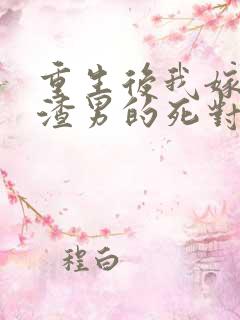 重生後我嫁
渣男的死對
程白